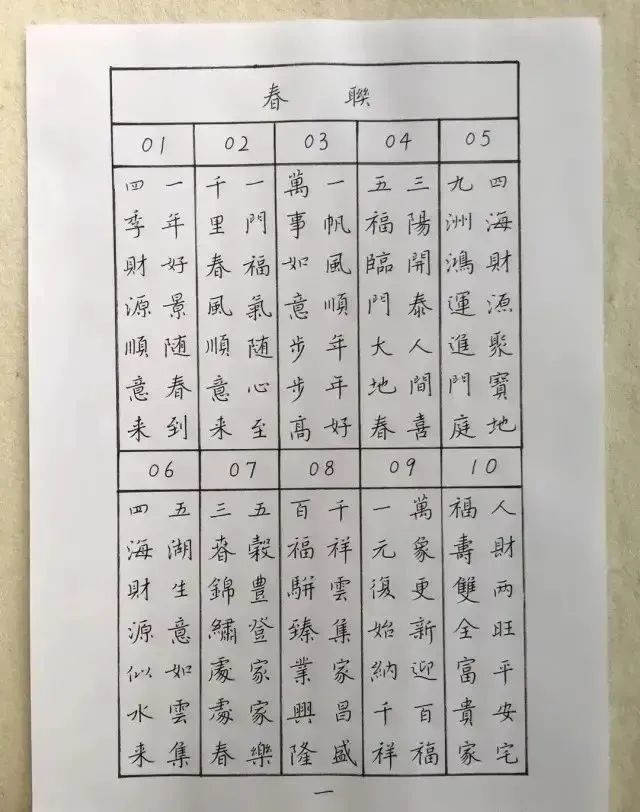 春 聯
01
一年好景随春到
四季財源順意来
02
一門福氣随心至
千里春風順意来
03
一帆風順年年好
萬事如意步步高
04
三陽開泰人間喜
五福臨門大地春
05
四海財源聚寶地
九洲鴻運進門庭
06
五湖生意如雲集
四海財源似水来
07
五穀豊登家家樂
三春錦繡處處春
08
千祥雲集家昌盛
百福駢臻業興隆
09
萬象更新迎百福
一元復始納千祥
10
人財两旺平安宅
福壽雙全富貴家
一